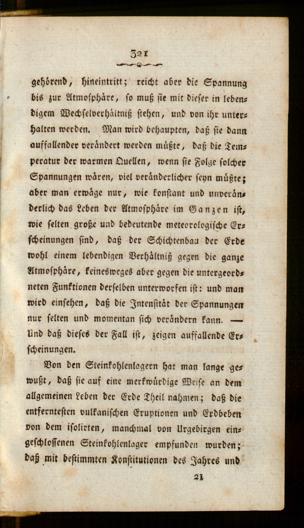 321
gehörend, hineintritt; reicht aber die Spannung
bis zur Atmosphäre, so muß sie mit dieser in leben-
digem Wechselverhältniß stehen, und von ihr unter-
halten werden. Man wird behaupten, daß sie dann
auffallender verändert werden müßte, daß die Tem-
peratur der warmen Quellen, wenn sie Folge solcher
Spannungen wären, viel veränderlicher seyn müßte;
aber man erwäge nur, wie konstant und unverän-
derlich das Leben der Atmosphäre im Ganzen ist,
wie selten große und bedeutende meteorologische Er-
scheinungen sind, daß der Schichtenbau der Erde
wohl einem lebendigen Verhältniß gegen die ganze
Atmosphäre, keinesweges aber gegen die untergeord-
neten Funktionen derselben unterworfen ist: und man
wird einsehen, daß die Intensität der Spannungen
nur selten und momentan sich verändern kann. —
Und daß dieses der Fall ist, zeigen auffallende Er-
scheinungen.
Von den Steinkohlenlagern hat man lange ge-
wußt, daß sie auf eine merkwürdige Weise an dem
allgemeinen Leben der Erde Theil nahmen; daß die
entferntesten vulkanischen Eruptionen und Erdbeben
von dem isolirten, manchmal von Urgebirgen ein-
geschlossenen Steinkohlenlager empfunden wurden;
daß mit bestimmten Konstitutionen des Jahres und
21